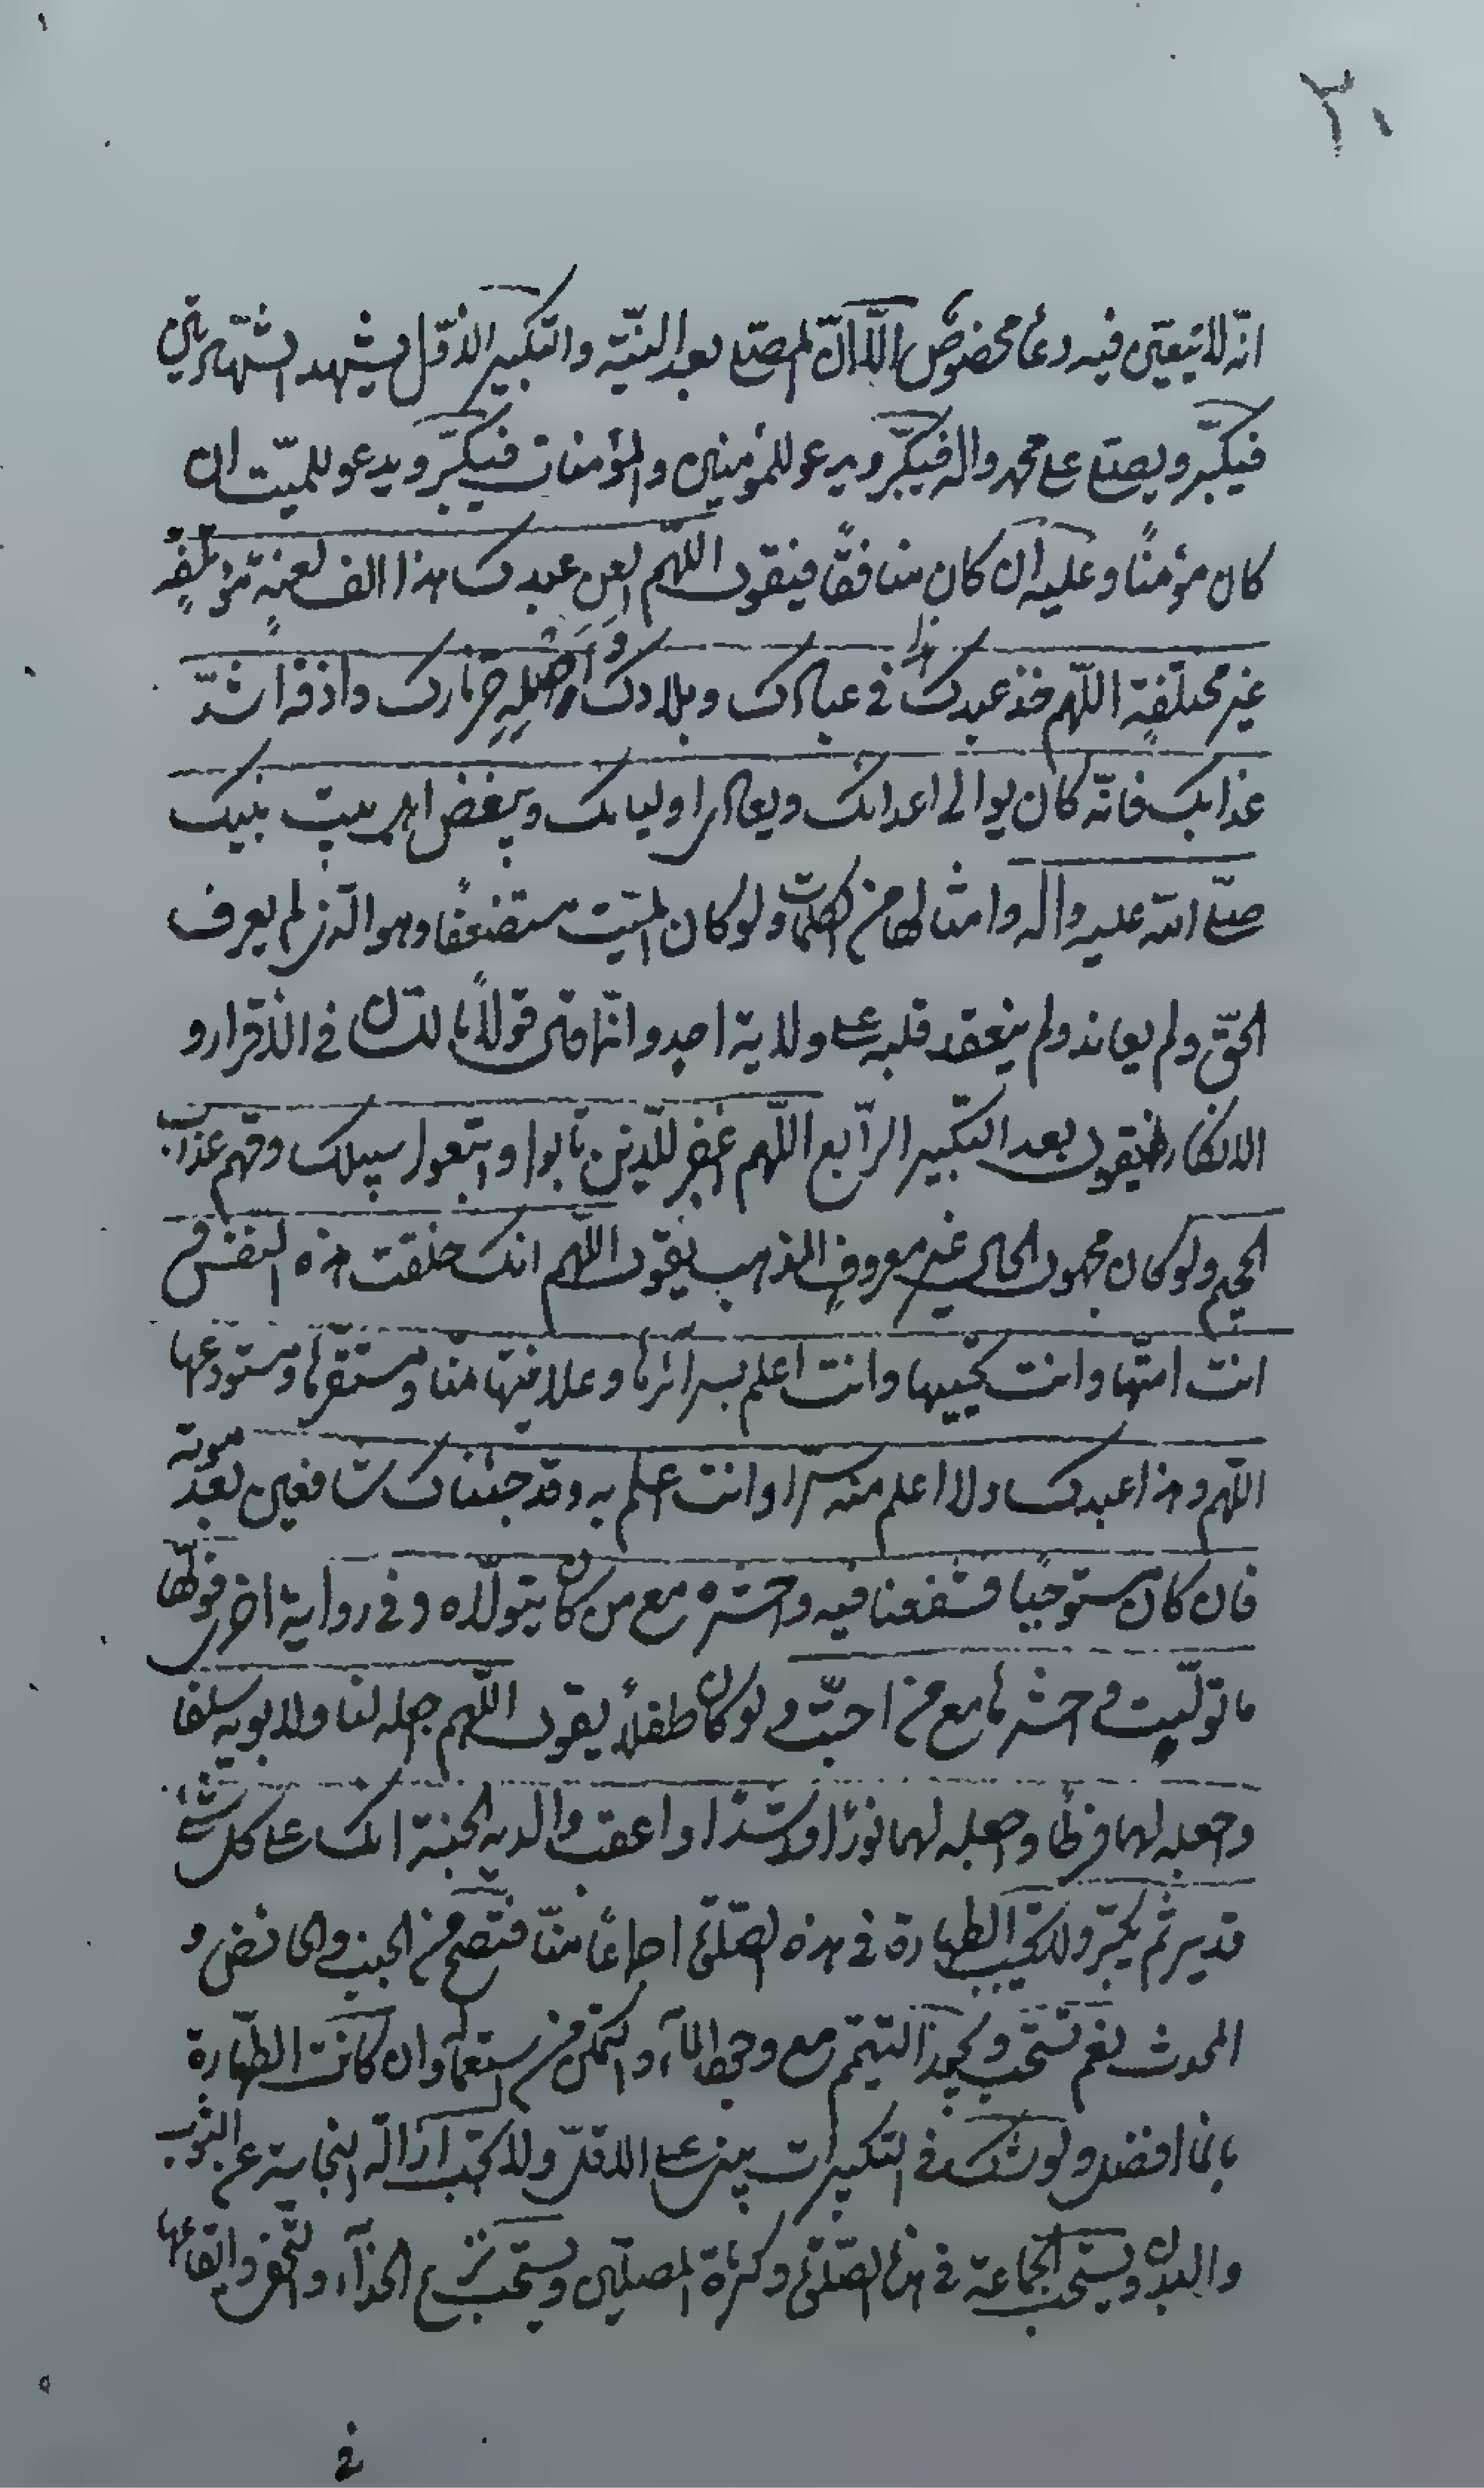 ٣١
انّه لا يتعيّن فيه دعاء مخصوص الّا انّ المصلّي بعد النيّة والتكبير الاوّل يشهد الشهادتين
فيكبّر ويصلّي على محمد واله فيكبّر ويدعو للمؤمنين والمؤمنات فيكبّر ويدعو للميّت ان
كان مؤمنًا وعليه ان كان منافقًا فيقول اللّهم العن عبدك هذا الف لعنة مؤتلفة
غير مختلفة اللّهم اخذ عبدك هذا في عبادك وبلادك واصله حرّ نارك واذقه اشدّ
عذابك فانّه كان يوالي اعدائك ويعادي اوليائك ويبغض اهل بيت نبيك
صلّى الله عليه واله وامثالها من الكلمات ولو كان الميّت مستضعفًا وهو الّذي لم يعرف
الحقّ ولم يعاند ولم ينعقد قلبه على ولاية احد وانّما قولًا في الاقرار و
الانكار فيقول بعد التكبير الرّابع اللّهم اغفر للّذين تابوا واتّبعوا سبيلك وقهم عذاب
الجحيم ولو كان مجهول الحال غير معروف المذهب يقول اللّهم انك خلقت هذه النفس و
انت امتّها وانت تحييها وانت اعلم بسرائرها وعلانيتها منّا ومستقرّها ومستودعها
اللّهم وهذا عبدك ولا اعلم منه سرّا وانت اعلم به وقد جئناك شافعين بعد موته
فان كان مستوجبًا فشفعنا فيه واحشره مع من كان يتولّاه وفي رواية اخرى فولّها
ما تولّيت واحشرها مع من احبّت ولو كان طفلًا يقول اللّهم اجعله لنا ولابويه سلفا
واجعله لهما فرطًا واجعله لهما نورًا ورشدًا واعقب والديه الجنة انك على كل شئ
قدير ثم يكبّر ولا تجب الطهارة في هذه الصّلوة اجماعًا منّا فتصح من الجنب والحائض و
المحدث نعم تستحب ويجوز التيمّم مع وجود الماء والتمكن من استعماله وان كانت الطّهارة
بالماء افضل ولو شك في التكبيرات يبني على الاقلّ ولا تجب ازالة النجاسة عن الثوب
والبدن ويستحب الجماعة في هذه الصّلوة وكثرة المصلّين ويستحب نزع الحذاء والخف وايقاعها
في